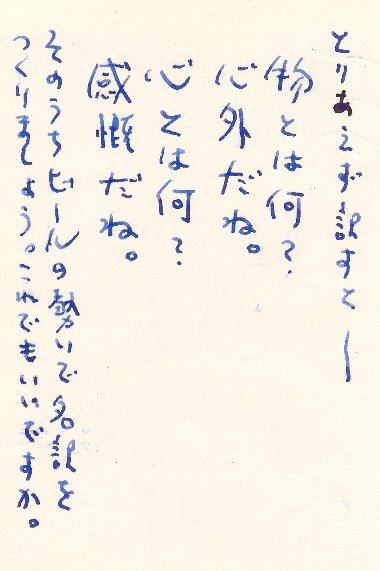 とりあえず訳すと―
物とは何?
心外だね。
心とは何?
感慨だね。
そのうちビールの勢いで名訳を
つくりましょう。これでもいいですか。